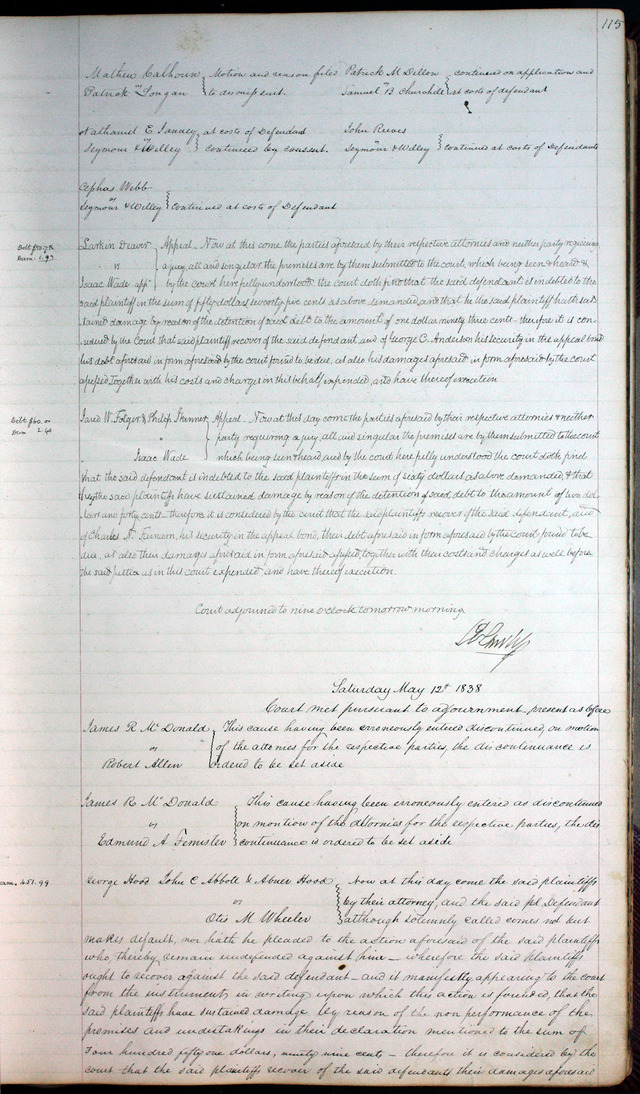 115
Mathew Calhoun } Motion and reason filed
vs
Patrick Dougan } to dismiss suit.
Patrick M Dillon } continued on application and
vs
Samuel B Churchill } at costs of defendant
Nathaniel E Janney } at costs of Defendant
vs
Seymour & Willey } continued by consent.
John Reeves
vs
Seymour & Willey } continued at costs of Defendants
Cephas Webb
vs
Seymour & Willey } continued at costs of Defendant
Debt $50.75
Dam. 1.93
Larkin Deaver } Appeal - Now at this come the parties aforesaid by their respective attornies and neither party requiring
vs } a jury, all and singular the premises are by them submitted to the court, which being seen & heard &
Isaac Wade appt } by the court here fully understood. the court doth find that the said defendant is indebted to the
said plaintiff in the sum of fifty dollars seventy five cents as above demanded, and that he the said plaintiff hath sus
tained damage by reason of the detention of said debt to the amount of one dollar ninety three cents - therefore it is con-
sidered by the court that said plaintiff recover of the said defendant and of George C. Anderson his security in the appeal bond
his debt aforesaid in form aforesaid by the court found to be due, as also his damages aforesaid in form aforesaid by the court
assessed together with his costs and charges in this behalf expended, and have thereof execution
Debt $60.00
Dam 2.40
Jared W. Folger & Philip Skinner } Appeal - Now at this day come the parties aforesaid by their respective attornies & neither
vs } party requiring a jury, all and singular the premises are by them submitted to the court
Isaac Wade } which being seen & heard and by the court here fully understood the court doth find
that the said defendant is indebted to the said plaintiffs in the sum of sixty dollars as above demanded, & that
they the said plaintiffs have sustained damage by reason of the detention of said debt to the amount of two dol
lars and forty cents - therefore it is considered by the court that the said plaintiffs recover of the said defendant, and
of Charles F. his security in the appeal bond, their debt aforesaid in form aforesaid by the court found to be
due, as also their damages aforesaid in form aforesaid assessed, together with their costs and charges as well before
the said justice as in this court expended and have thereof execution.
Court adjourned to nine o'clock tomorrow morning
Saturday May 12th 1838
Court met pursuant to adjournment - present as before
James R McDonald } This cause having been erroneously entered discontinued, on motion
vs } of the attornies for the respective parties, the discontinuance is
Robert Allen } ordered to be set aside
James R McDonald } This cause having been erroneously entered as discontinued
vs } on montion of the attornies for the respective parties, the dis
Edmund A Femister } continuance is ordered to be set aside
Dam. 451.99
George Hood John C Abbott & Abner Hood } Now at this day come the said plaintiffs
vs } by their attorney, and the said Defendant
Otis M Wheeler } although solemnly called comes not but
makes default, nor hath he pleaded to the action aforesaid of the said plaintiffs
who, thereby remain undefended against him - wherefore the said Plaintiffs
ought to recover against the said defendant - and it manifestly appearing to the court
from the instrument in writing upon which this action is founded, that the
said plaintiffs have sustained damage by reason of the non performance of the
promises and undertakings in their declaration mentioned to the sum of
Four hundred fifty one dollars, ninety nine cents - therefore it is considered by the
court that the said plaintiffs recover of the said defendants their damages aforesaid